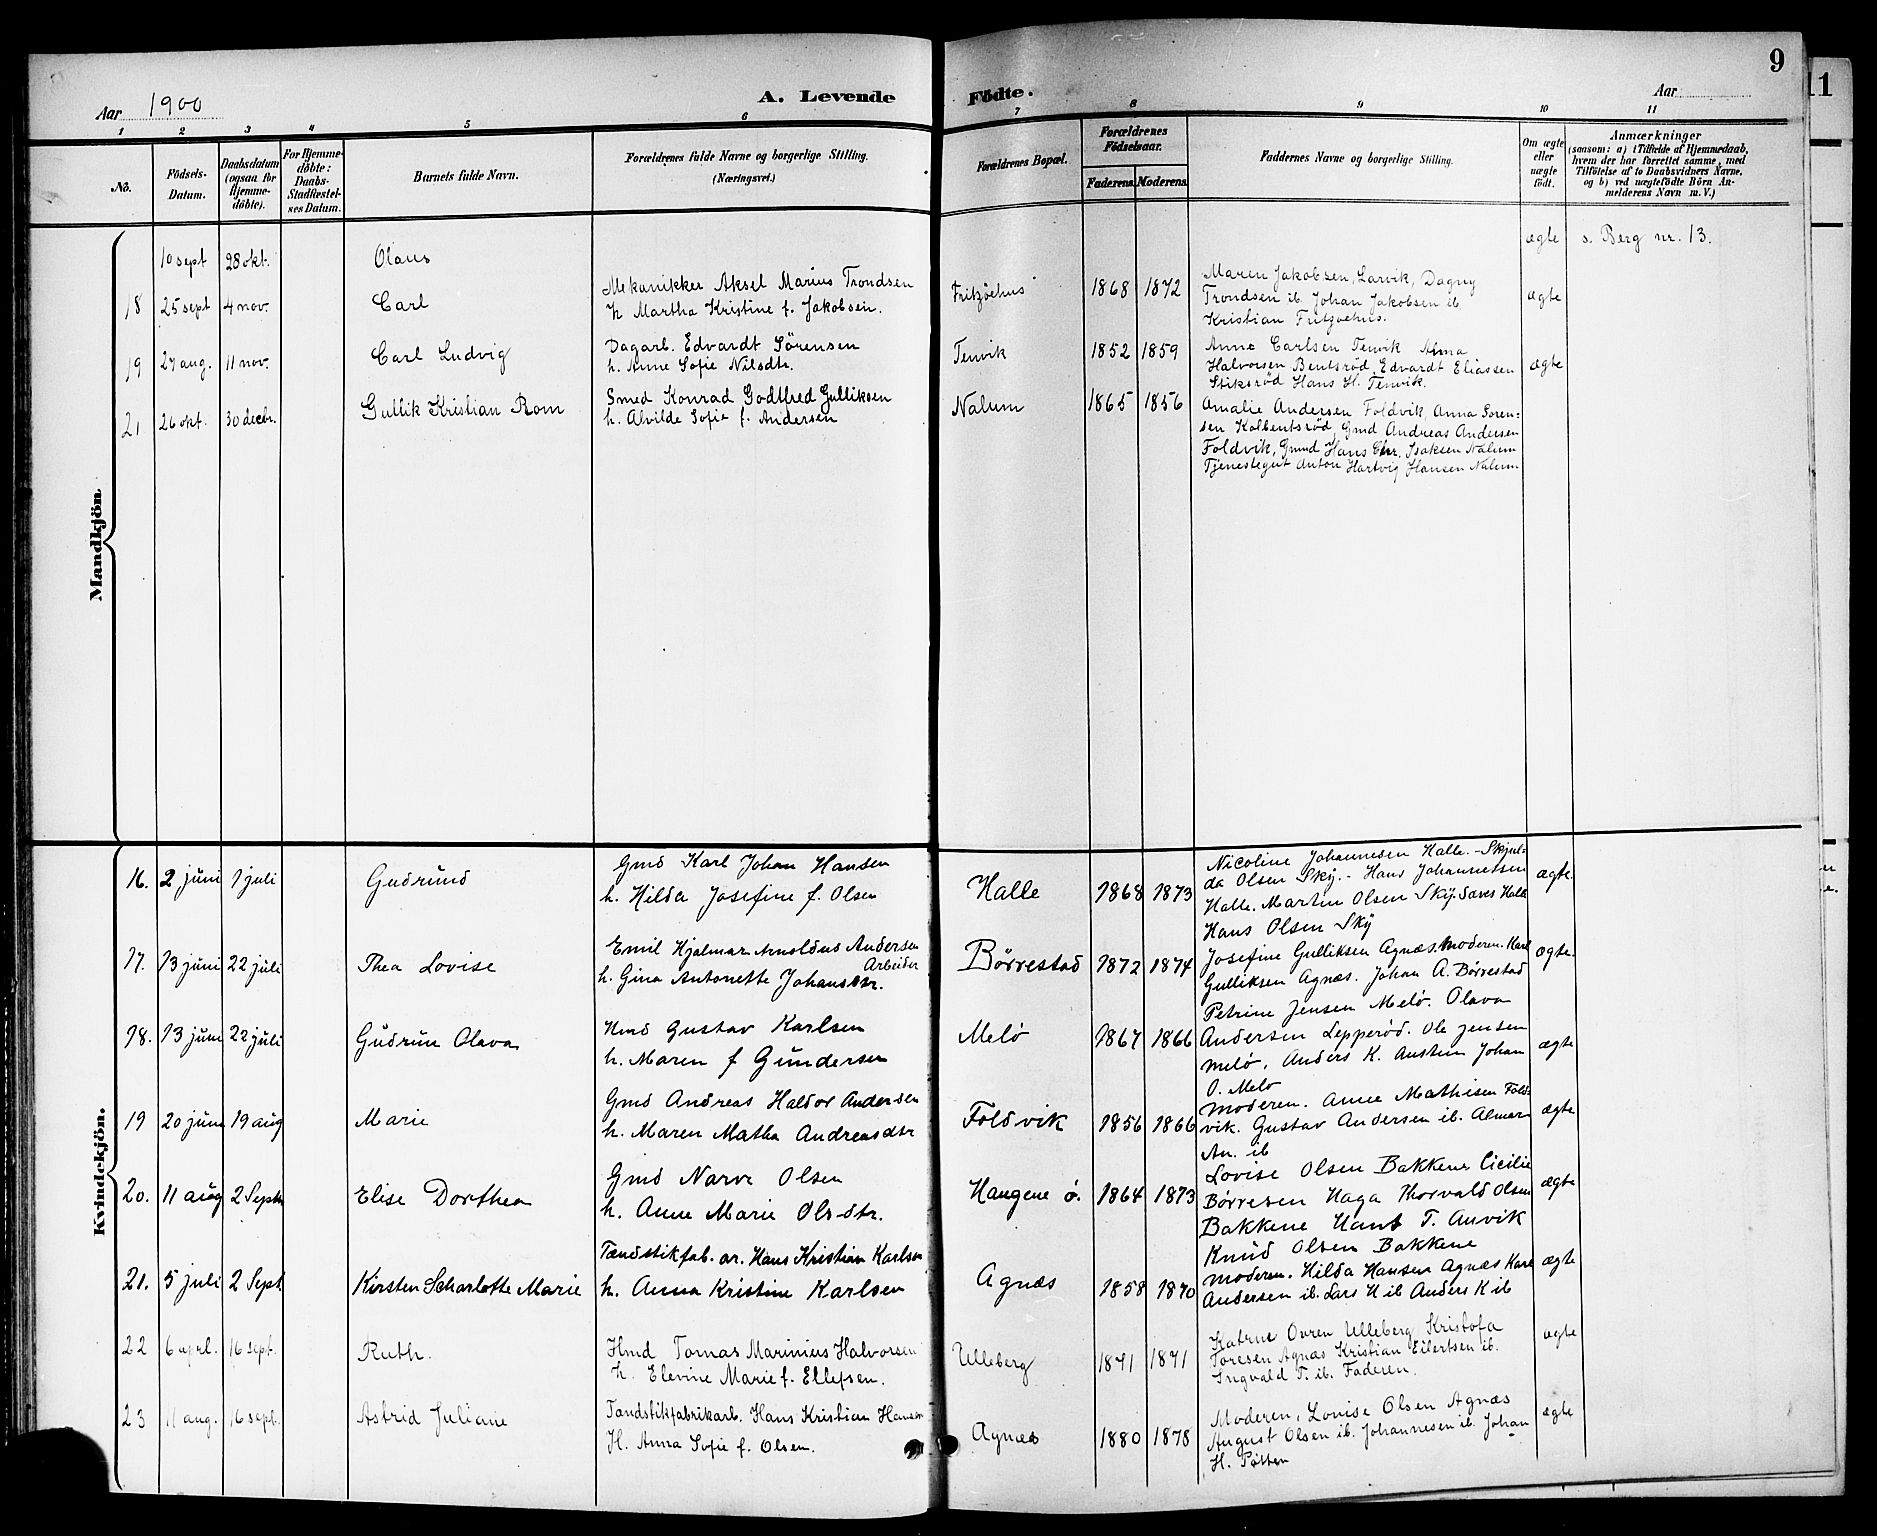 Aar 1900
A. Levende
Födte.
Aar
9
11
1 2 3 4 5 6 7 8 9 10 11
No.
Födsels-
Datum.
Daabsdatum
(ogsaa for
Hjemme-
döbte).
For Hjemme-
döbte:
Daabs-
Stadfæstel-
ses Datum.
Barnets fulde Navn.
Forældrenes fulde Navne og borgerlige Stilling.
(Næringsvei.)
Forældrenes Bopæl.
Forældrenes
Födselsaar.
Faderens. Moderens.
Faddernes Navne og borgerlige Stilling.
Om ægte
eller
uægte
födt.
Anmærkninger
(saasom: a) i Tilfælde af Hjemmedaab,
hvem der har forrettet samme, med
Tilföielse af to Daabsvidners Navne,
og b) ved uægtefödte Börn An-
melderens Navn m. V.)
Mandkjön.
10 sept 28 okt. Olaus ægte s. Berg nr. 13.
18 25 sept 4 nov. Carl
Mekanikker Aksel Marius Trondsen
h. Martha Kristine f. Jakobsen.
Fritzöehus 1868 1872
Maren Jakobsen, Larvik, Dagny
Trondsen ib. Johan Jakobsen ib
Kristian Fritzoehus.
ægte
19 27 aug. 11 nov. Carl Ludvig
Dagarb. Edvardt Sörensen
h. Anne Sofie Nilsdtr.
Tenvik 1852 1859
Anne Carlsen Tenvik Alma
Halvorsen Bentsröd, Edvardt Eliassen
Stiksröd Hans H. Tenvik.
ægte
21 26 okt. 30 decbr. Gullik Kristian Rom
Smed Konrad Godtfred Gulliksen
h. Alvilde Sofie f. Andersen
Nalum 1865 1856
Amalie Andersen Foldvik, Anna Soren-
sen Kolbentsröd, Gmd Andreas Andersen
Foldvik, Gmd Hans Chr. Isaksen Nalum
Tjenestegut Anton Hartvig Hansen Nalum
Kvindekjön.
16. 2 juni 1 juli Gudrund
Gmd Karl Johan Hansen
h. Hilda Josefine f. Olsen
Halle 1868 1873
Nicoline Johannesen Halle. - Skjul-
da Olsen Sky. - Hans Johannesen
Halle. Martin Olsen Sky. Halle
Hans Olsen Sky
ægte.
17. 13 juni 22 juli Thea Lovise
Emil Hjalmar Arnoldus Andersen
Arbeider
h. Gina Antonette Johansdtr.
Börrestad 1872 1874
Josefine Gulliksen Agnæs. Moderen. Karl
Gulliksen Agnæs. Johan A. Börrestad
ægte.
18. 13 juni 22 juli Gudrun Olava
Hmd Gustav Karlsen
h. Maren f Gundersen
Melö 1867 1866
Petrine Jensen Melö. Olava
Andersen Lepperöd. Ole Jensen
melö, Anders K. Austein Johan
O. Melo
ægte
19 20 juni 19 aug Marie
Gmd Andreas Haldor Andersen
h. Maren Matha Andreasdtr
Foldvik 1856 1866
Moderen. Anne Mathisen Fold-
vik. Gustav Andersen ib. Almar
An. ib
ægte
20. 11 aug 2 Septr Elise Dorthea
Gmd Narve Olsen
h. Anne Marie Olsdtr.
Haugene ö. 1864 1873
Lovise Olsen Bakkene Cicilie
Börresen Haga Thorvald Olsen
Bakkene Hans T. Auvik
Knud Olsen Bakkene
ægte
21. 5 juli 2 Sept Kirsten Scharlotte Marie
Tændstikfab. ar. Hans Kristian Karlsen
h. Anna Kristine Karlsen
Agnæs 1858 1870
Moderen. Hilda Hansen Agnæs Karl
Andersen ib. Lars H ib Anders K ib
ægte
22 6 aprl. 16 sept. Ruth.
Hmd Tomas Marinius Halvorsen
h. Elevine Marie f. Ellefsen.
Ulleberg 1871 1871
Katrine Ovren Ulleberg Kristofa
Toresen Agnas Kristian Eilertsen ib.
Ingvald T. ib. Faderen.
ægte
23 11 aug. 16 sept. Astrid Juliane
Tandstikfabrikarb. Hans Kristian Hansen
H. Anna Sofie f. Olsen.
Agnæs 1880 1878
Moderen, Lovise Olsen Agnæs
August Olsen ib. Johannesen ib. Johan
H. Pötter
ægte